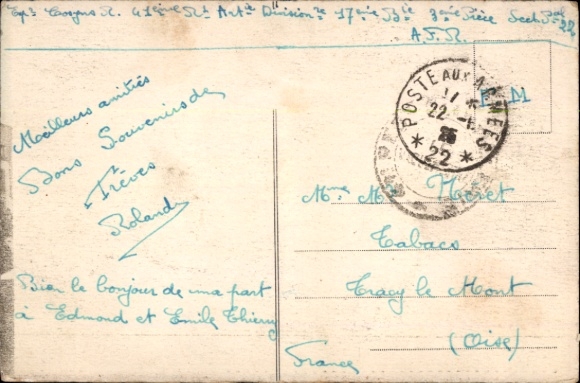 R. 41ème Rt Art ie Division re 17ème Bie 3ème Pièce Sect. Pal 22
A.F.R.
F M
POSTE AUX ARMEES
22
* 22 *
Meilleurs amitiés
Bons Souvenirs de
Trèves
Roland
Bien le bonjour de ma part
à Edmond et Emile Thierry
Mme M
Tabacs
Tracy le Mont
(Oise)
France